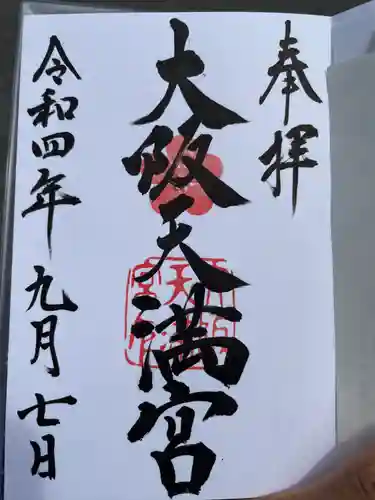 奉拝
大阪天満宮
令和四年九月七日